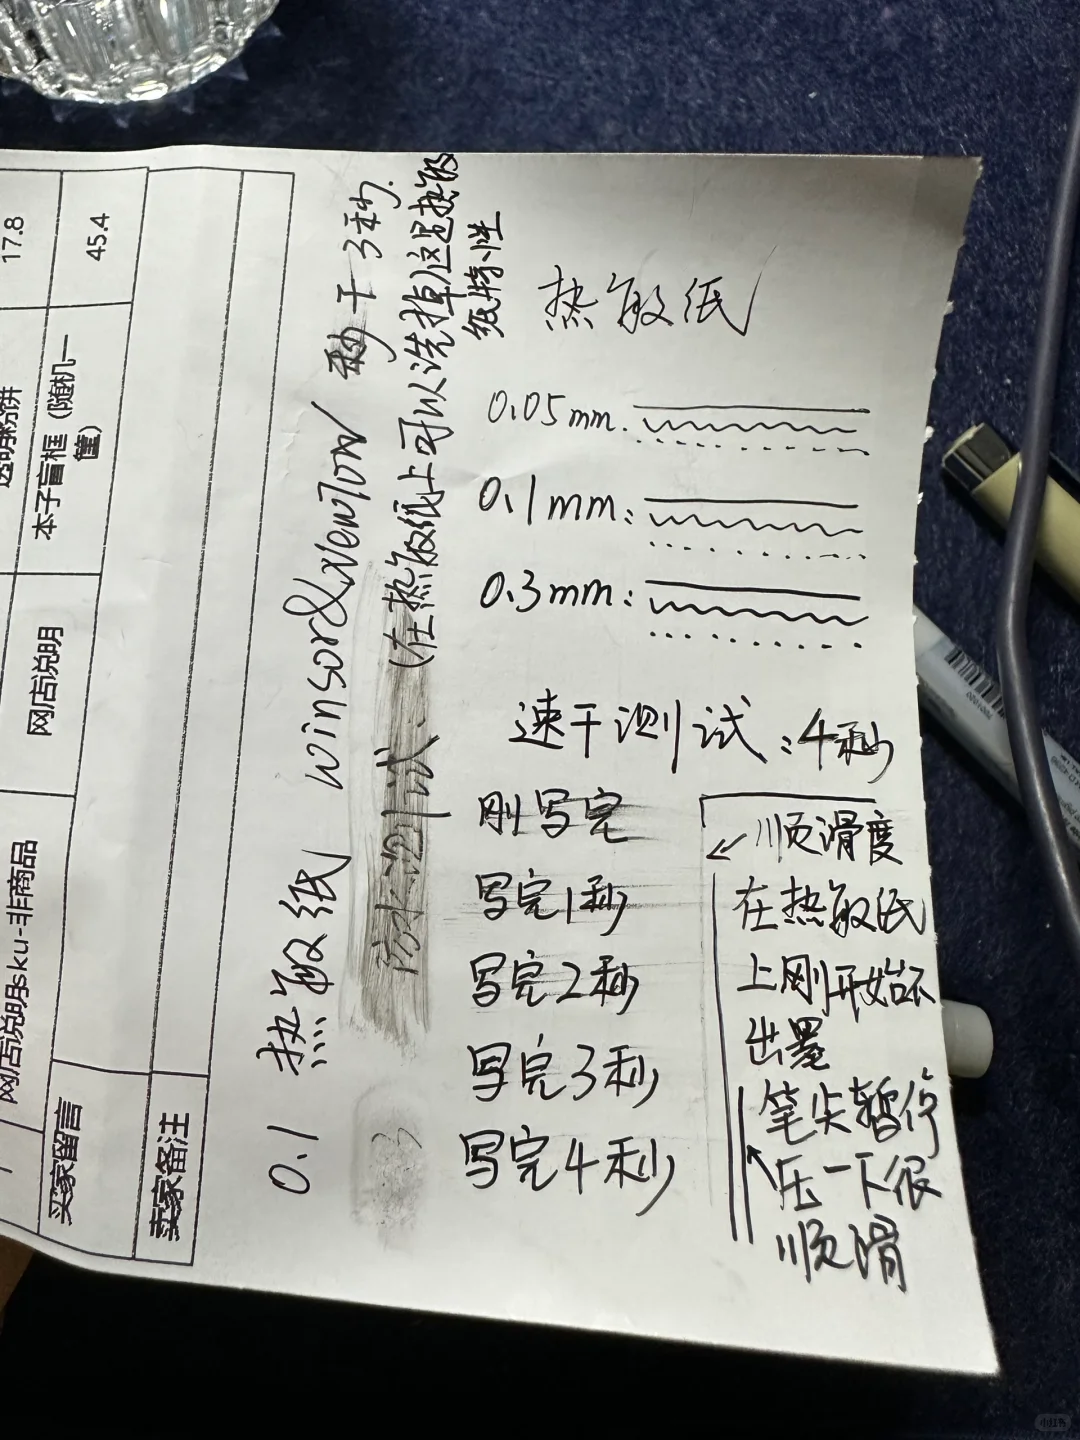 热敏纸
0.05mm.
0.1mm:
0.3mm:
速干测试:4秒
刚写完
写完1秒
写完2秒
写完3秒
写完4秒
顺滑度
在热敏纸
上刚开始不
出墨
笔尖暂停
压一下很
顺滑
0.1 热敏纸 winsor&Newton 秒干3秒.
防水测试:(在热敏纸上可以洗掉)这是热敏
纸特性
17.8
45.4
透明粉饼
本子盲框(随机一
篇)
网店说明
网店说明sku-非商品
买家留言
卖家备注
小红书